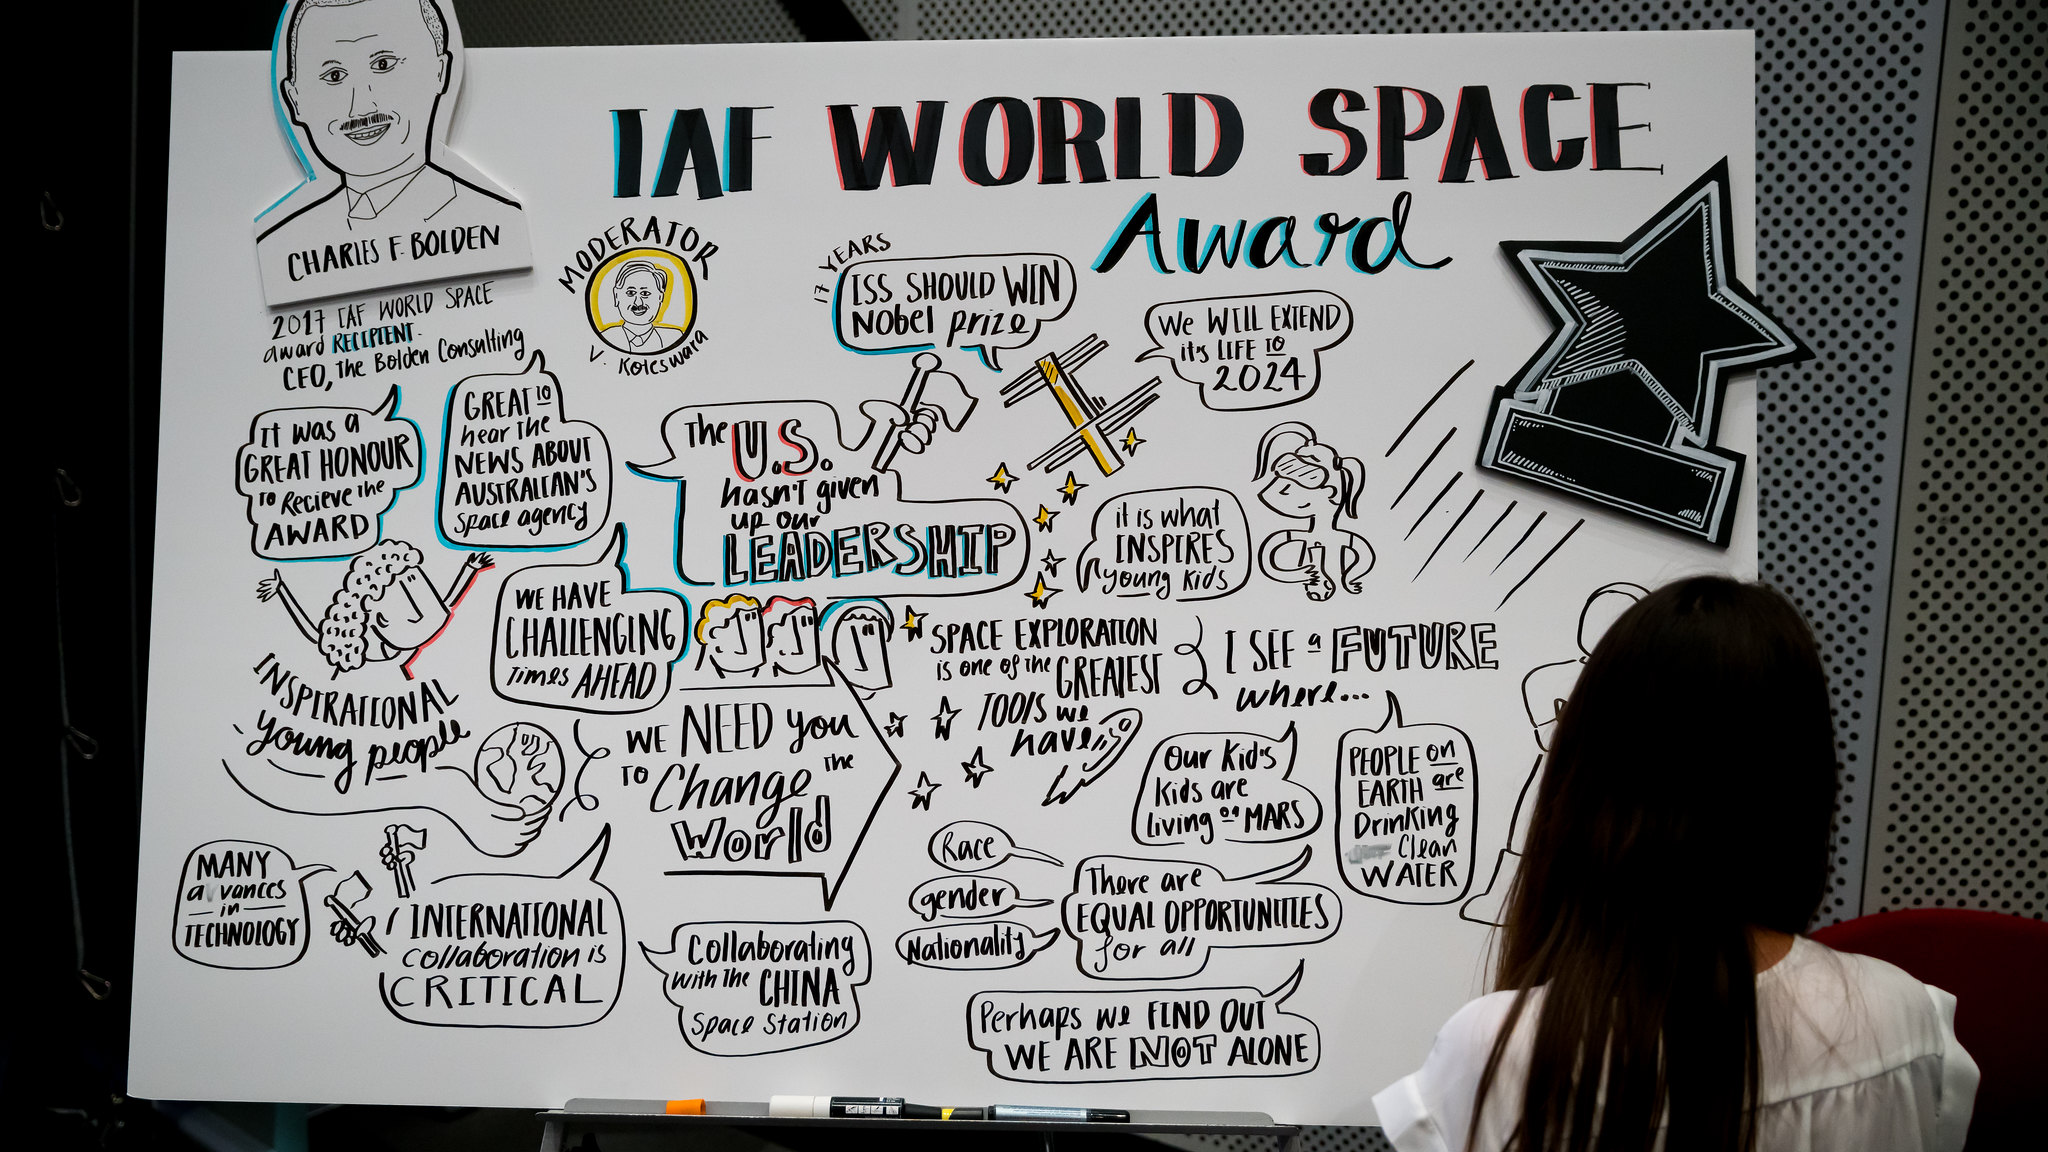 IAF WORLD SPACE
Award
CHARLES F. BOLDEN
2017 IAF WORLD SPACE
award RECIPIENT.
CEO, The Bolden Consulting
MODERATOR
V. Koteswara
17 YEARS
ISS SHOULD WIN
NObel prize
We WILL EXTEND
it's LIFE TO
2024
IT WAS A
GREAT HONOUR
TO Recieve the
AWARD
GREAT TO
hear The
NEWS ABOUT
AUSTRALIAN'S
Space agency
The U.S.
hasn't given
up our
LEADERSHIP
it is what
INSPIRES
young kids
WE HAVE
CHALLENGING
Times AHEAD
INSPIRATIONAL
young people
WE NEED you
TO Change THE
World
SPACE EXPLORATION
is one of the GREATEST
TOOLS we
have
I SEE a FUTURE
where...
Our Kid's
Kids are
living on MARS
PEOPLE on
EARTH are
Drinking
Clean
WATER
MANY
advances
in
TECHNOLOGY
INTERNATIONAL
collaboration is
CRITICAL
Collaborating
with The CHINA
Space Station
Race
gender
Nationality
There are
EQUAL OPPORTUNITIES
for all
Perhaps we FIND OUT
WE ARE NOT ALONE